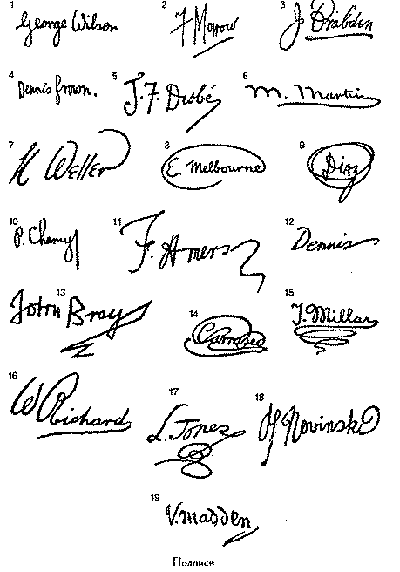 1 George Wilson
2 F Morrow
3 J Drabden
4 Dennis Brown.
5 J.F. Drobé
6 M. Martin
7 K Weller
8 E. Melbourne
9 Diaz
10 P. Cherny
11 F. Amers
12 Dennis
13 John Bray
14
15 J. Millar
16 W Richard
17 L. Jonez
18 Novinski
19 V. madden
Подписи